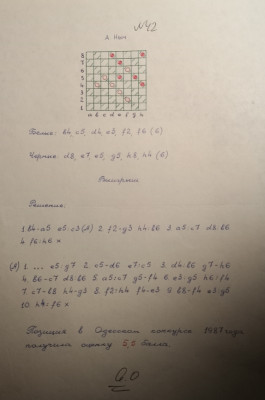 №42
А. Наги
8
7
6
5
4
3
2
1
a b c d e f g h
Белые: b4, c5, d4, e3, f2, f6 (6)
Черные: d8, e7, e5, g5, h8, h4 (6)
Выигрыш
Решение:
1. b4-a5 e5:c3 (A) 2. f2-g3 h4:b6 3. a5:c7 d8:b6
4. f6:h6 x
(A) 1. ... e5:g7 2. c5-d6 e7:c5 3. d4:b6 g7-h6
4. b6-c7 d8:b6 5. a5:c7 g5-f4 6. e3:g5 h6:f4
7. c7-b8 h4-g3 8. f2:h4 f4-e3 9. b8-f4 e3:g5
10. h4:f6 x
Позиция в Одесском конкурсе 1987 года
получила оценку 5,5 балла.